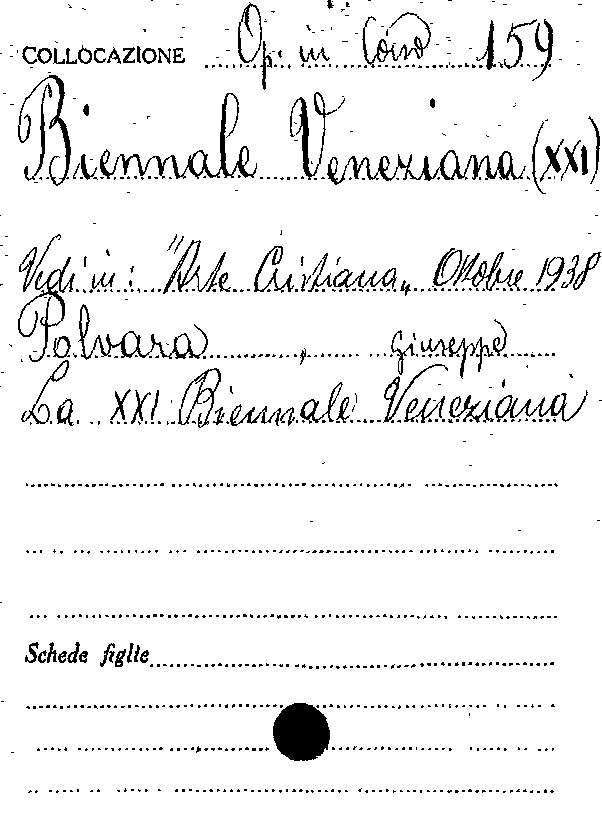 COLLOCAZIONE Op. in Corso 159
Biennale Veneziana (XXI)
Vedi in: "Arte Cristiana„ Ottobre 1938
Polvara , Giuseppe
La XXI Biennale Veneziana
Schede figlie